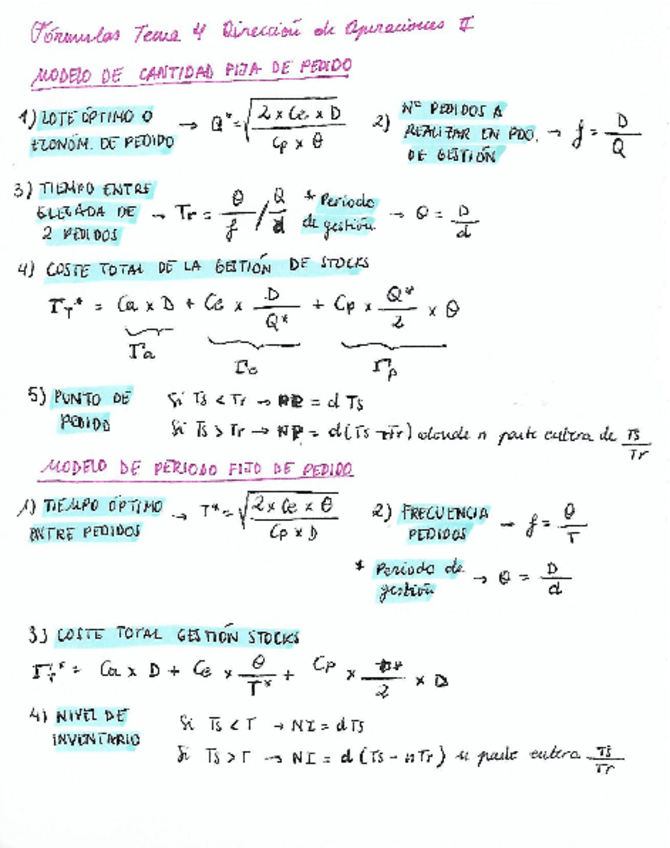 Fórmulas Tema 4 Dirección de Operaciones II
MODELO DE CANTIDAD FIJA DE PEDIDO
1) LOTE ÓPTIMO O ECONÓM. DE PEDIDO → Q* = √(2 x Ce x D / Cp x θ)
2) Nº PEDIDOS A REALIZAR EN PDO. DE GESTIÓN → f = D / Q
3) TIEMPO ENTRE LLEGADA DE 2 PEDIDOS → Tr = θ / f / Q / d
* Periodo de gestión → θ = D / d
4) COSTE TOTAL DE LA GESTIÓN DE STOCKS
ΓT* = Ca x D + Ce x D / Q* + Cp x Q* / 2 x θ
Γa Γe Γp
5) PUNTO DE PEDIDO
Si Ts < Tr → = d Ts
Si Ts > Tr → = d (Ts - Tr) donde n parte entera de Ts / Tr
MODELO DE PERIODO FIJO DE PEDIDO
1) TIEMPO ÓPTIMO ENTRE PEDIDOS → T* = √(2 x Ce x θ / Cp x D)
2) FRECUENCIA PEDIDOS → f = θ / T
* Periodo de gestión → θ = D / d
3) COSTE TOTAL GESTIÓN STOCKS
ΓT* = Ca x D + Ce x θ / T* + Cp x / 2 x D
4) NIVEL DE INVENTARIO
Si Ts < T → NI = d Ts
Si Ts > T → NI = d (Ts - nTr) n parte entera Ts / Tr